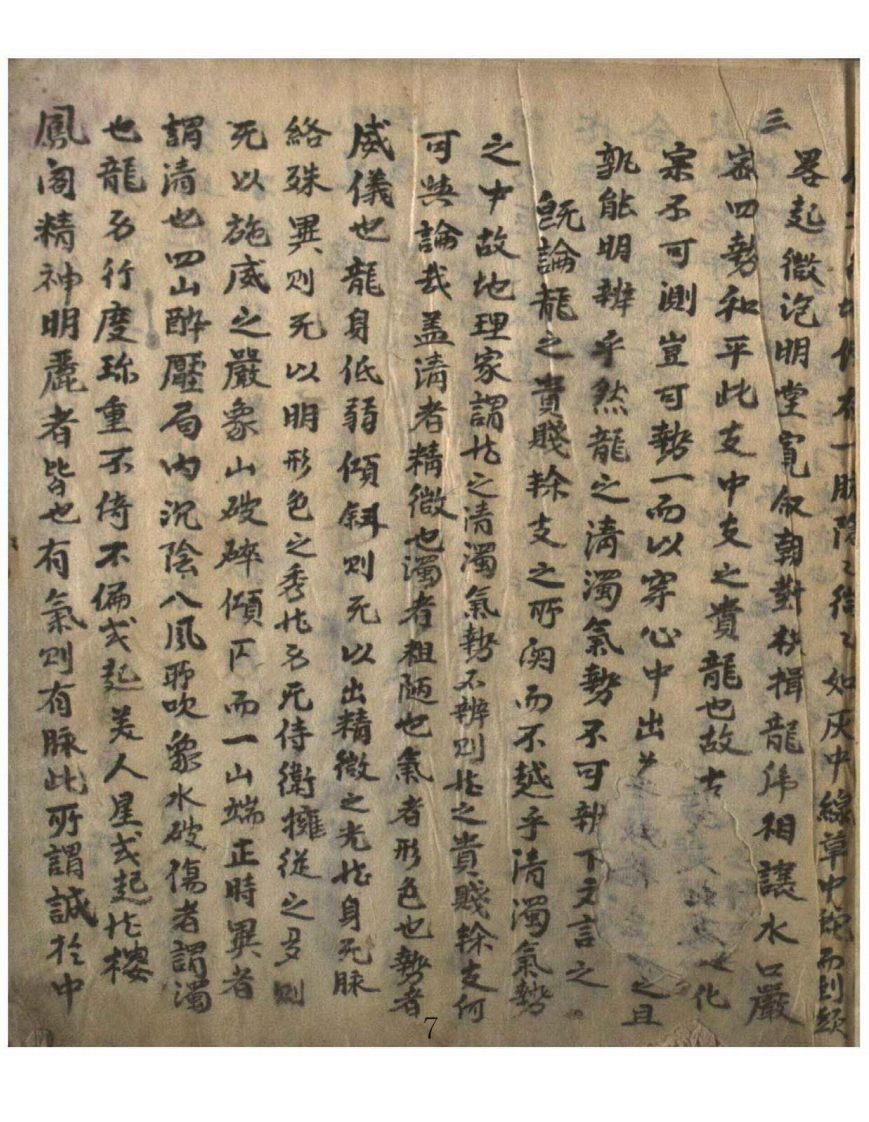 如灰中線草中蛇而到頭
三
畧起微泡明堂寬㪅朝對拱揖龍虎相讓水口嚴
密四勢和平此支中支之貴龍也故古化
宗不可測豈可勢一而以穿心中出之且
孰能明辨乎然龍之清濁氣勢不可辨下文言之
旣論龍之貴賤榦支之所関而不越乎清濁氣勢
之中故地理家謂龙之清濁氣勢不辨則龙之貴賤榦支何
可與論哉盖清者精微也濁者粗陋也氣者形色也勢者
威儀也龍身低弱傾斜則无以出精微之光龙身死脉
絡殊異則无以明形色之秀龙若无侍衛擁従之多則
死以施威之嚴象山破碎傾仄而一山端正時異者
謂清也四山酔壓局內沉陰八風聊吹象水破傷者謂濁
也龍若行度珎重不倚不偏或起美人星或起龙樓
鳳阁精神明麗者皆也有氣則有脉此所謂誠於中
7